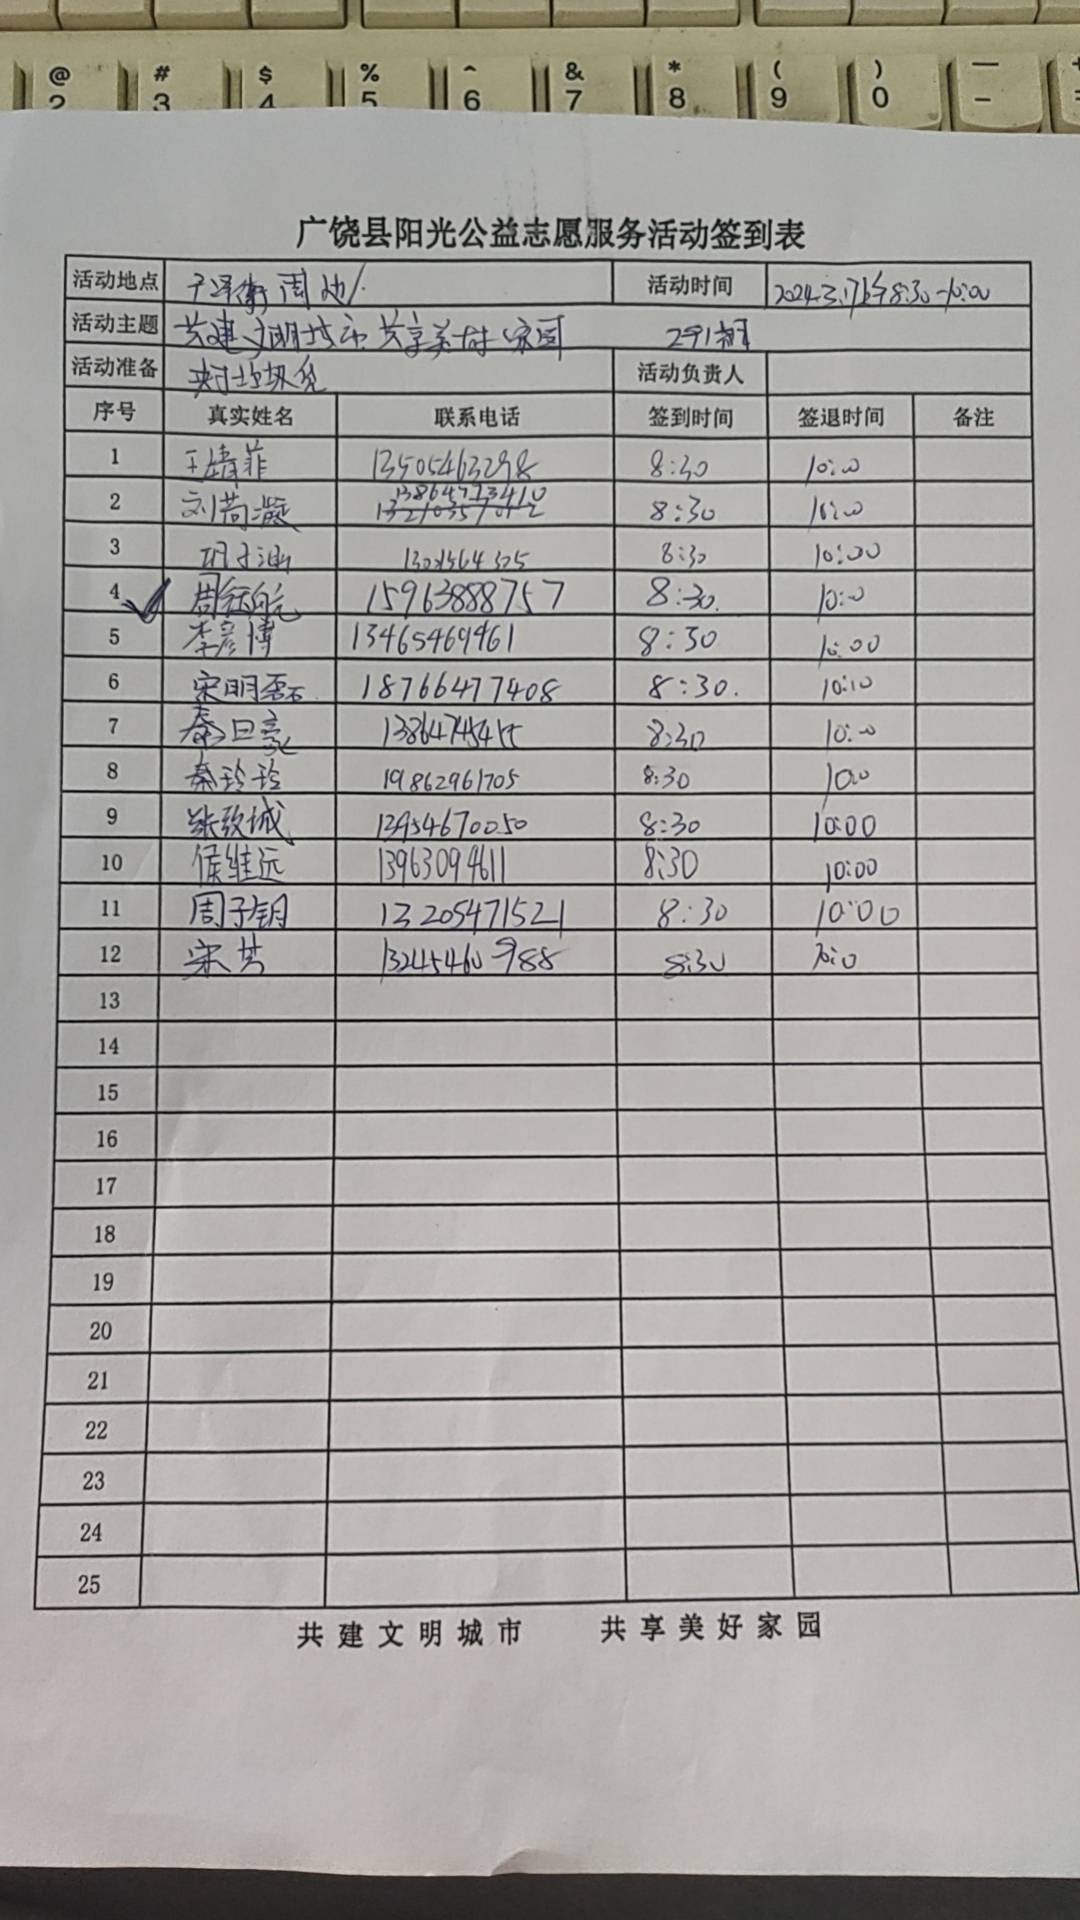 @ # $ % ^ & * ( ) —
2 3 4 5 6 7 8 9 0 -
广饶县阳光公益志愿服务活动签到表
活动地点 周边 活动时间 2024.3.17 8:30-10:00
活动主题 共建文明城市 共享美好家园 291期
活动准备 垃圾 活动负责人
序号 真实姓名 联系电话 签到时间 签退时间 备注
1 王婧菲 13505463298 8:30 10:00
2 刘 13864773410 8:30 10:00
3 8:30 10:00
4 周钰航 15963888757 8:30 10:00
5 李彦博 13465469461 8:30 10:00
6 宋明磊 18766477408 8:30. 10:10
7 秦曰豪 8:30 10:00
8 秦玲玲 19862961705 8:30 10:00
9 张致城 13954670050 8:30 10:00
10 侯维远 13963094611 8:30 10:00
11 周子钥 13205471521 8:30 10:00
12 宋芳 988 8:30 10:0
13
14
15
16
17
18
19
20
21
22
23
24
25
共建文明城市 共享美好家园